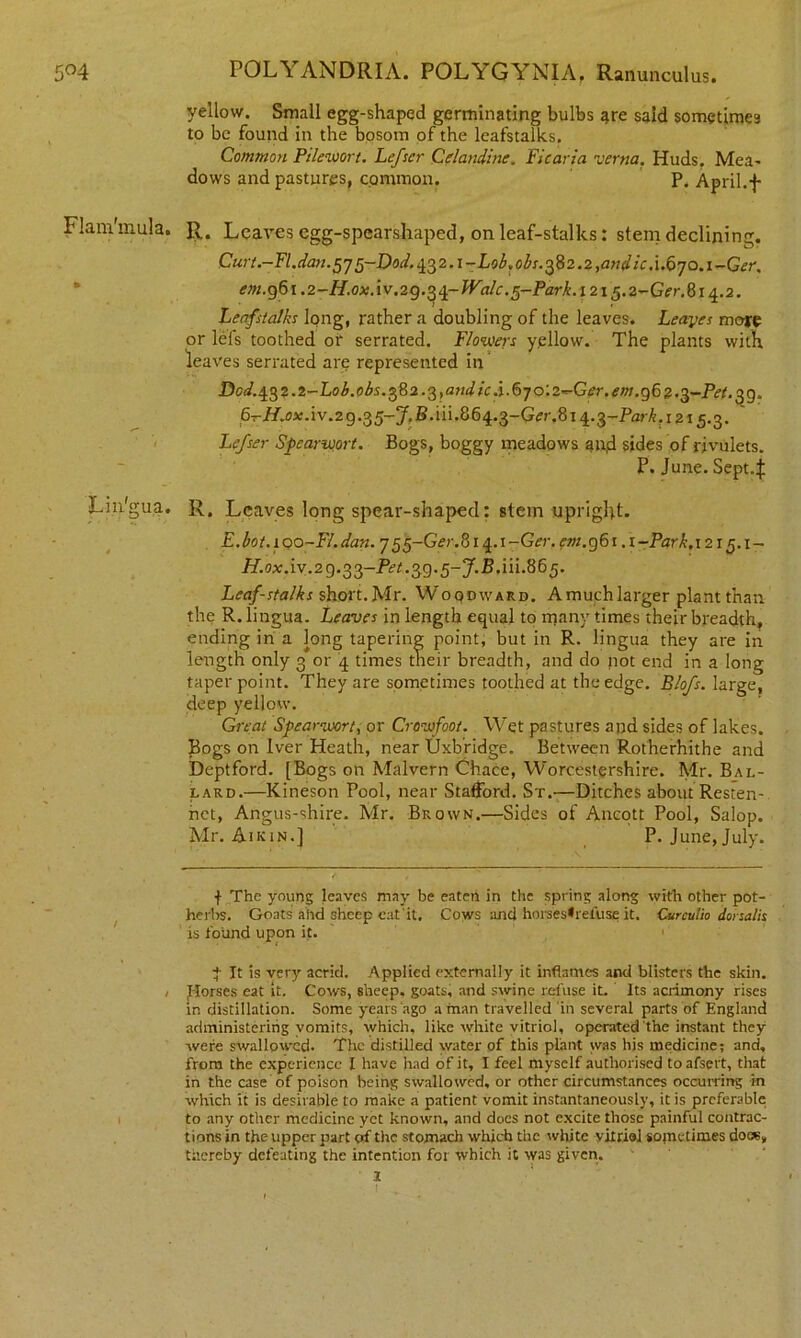 504 POLYANDRIA. POLYGYNIA. Ranunculus.
yellow. Small egg-shaped germinating bulbs are said sometimes
to be found in the bosom of the leafstalks.
Common Pilewort. Lefser Celandine. Ficaria verna. Huds. Mea-
dows and pastures, common. P. April.†
Flam'mula. R. Leaves egg-spearshaped, on leaf-stalks: stem declining.
Curt.-Fl.dan.575-Dod.432.1-Lob.obs.382.2,andic.i.670.1-Ger.
em.961.2-H.ox.iv.29.34-Walc.5-Park.1215.2-Ger.814.2.
Leafstalks long, rather a doubling of the leaves. Leaves more
or lefs toothed or serrated. Flowers yellow. The plants with
leaves serrated are represented in
Dod.432.2-Lob.obs.382.3,andic.i.670.2-Ger.em.962.3-Pet.39.
6-H.ox.iv.29.35-J.B.iii.864.3-Ger.814.3-Park.1215.3.
Lefser Spearwort. Bogs, boggy meadows and sides of rivulets.
P. June. Sept.‡
Lin'gua. R. Leaves long spear-shaped: stem upright.
E.bot.100-Fl.dan.755-Ger.814.1-Ger.em.961.1-Park.1215.1-
H.ox.iv.29.33-Pet.39.5-J.B.iii.865.
Leaf-stalks short. Mr. WOODWARD. A much larger plant than
the R. lingua. Leaves in length equal to many times their breadth,
ending in a long tapering point, but in R. lingua they are in
length only 3 or 4 times their breadth, and do not end in a long
taper point. They are sometimes toothed at the edge. Blofs. large,
deep yellow.
Great Spearwort, or Crowfoot. Wet pastures and sides of lakes.
Bogs on Iver Heath, near Uxbridge. Between Rotherhithe and
Deptford. [Bogs on Malvern Chace, Worcestershire. Mr. BAL-
LARD.—Kineson Pool, near Stafford. ST.—Ditches about Resten-
net, Angus-shire. Mr. BROWN.—Sides of Ancott Pool, Salop.
Mr. AIKIN.] P. June, July.
† The young leaves may be eaten in the spring along with other pot-
herbs. Goats and sheep eat it. Cows and horses refuse it. Curculio dorsalis
is found upon it.
‡ It is very acrid. Applied externally it inflames and blisters the skin.
Horses eat it. Cows, sheep, goats, and swine refuse it. Its acrimony rises
in distillation. Some years ago a man travelled in several parts of England
administering vomits, which, like white vitriol, operated the instant they
were swallowed. The distilled water of this plant was his medicine; and,
from the experience I have had of it, I feel myself authorised to afsert, that
in the case of poison being swallowed, or other circumstances occurring in
which it is desirable to make a patient vomit instantaneously, it is preferable
to any other medicine yet known, and does not excite those painful contrac-
tions in the upper part of the stomach which the white vitriol sometimes does,
thereby defeating the intention for which it was given.